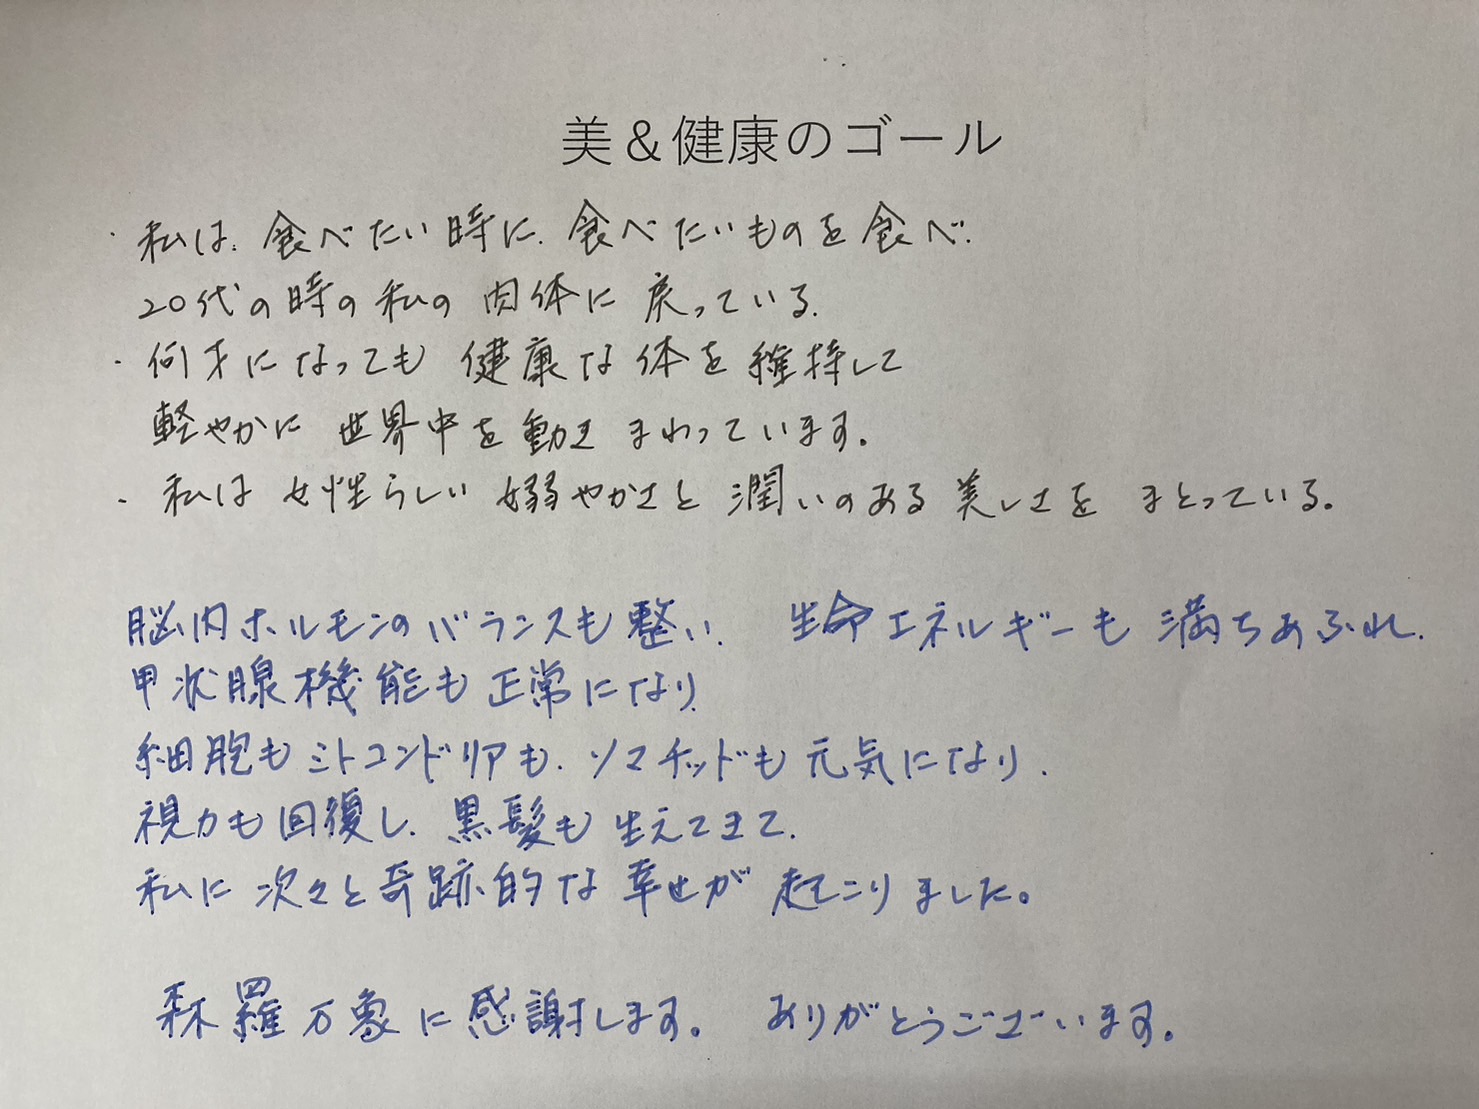 美&健康のゴール
・私は、食べたい時に、食べたいものを食べ、
20代の時の私の肉体に戻っている。
・何才になっても健康な体を維持して
軽やかに世界中を動きまわっています。
・私は女性らしい嫋やかさと潤いのある美しさをまとっている。
脳内ホルモンのバランスも整い、生命エネルギーも満ちあふれ、
甲状腺機能も正常になり、
細胞もミトコンドリアも、ソマチッドも元気になり、
視力も回復し、黒髪も生えてきて、
私に次々と奇跡的な幸せが起こりました。
森羅万象に感謝します。ありがとうございます。